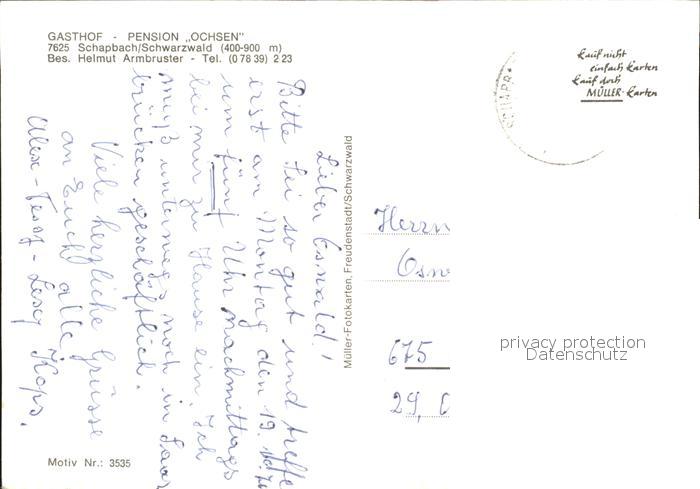 GASTHOF - PENSION „OCHSEN"
7625 Schapbach/Schwarzwald (400-900 m)
Bes. Helmut Armbruster - Tel. (0 78 39) 2 23
Lieber Oswald!
Bitte sei so gut und treffe
erst am Montag den 19.
um fünf Uhr nachmittags
bei mir zu Hause ein. Ich
muß unterwegs noch in Saar
brücken geschäftlich.
Viele herzliche Grüsse
an Euch alle
Alex - Tessy - Lesey Kops.
Motiv Nr.: 3535
Müller-Fotokarten, Freudenstadt/Schwarzwald
SCHAPB
kauf nicht
einfach Karten
kauf doch
MÜLLER-Karten
Herrn
Osw
675
29, 
privacy protection
Datenschutz